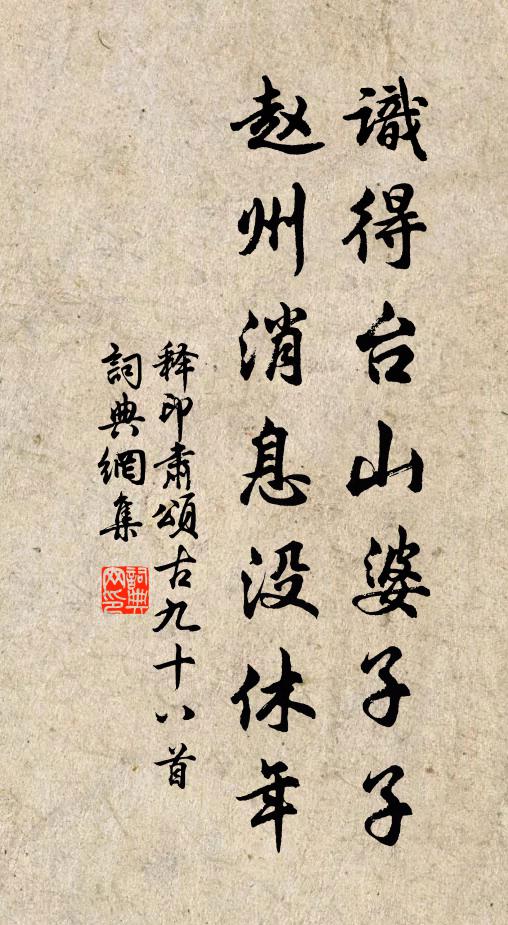 識得台山婆子子
赵州消息没休年
释印肃颂古九十八首
詞典網集
詞典网印